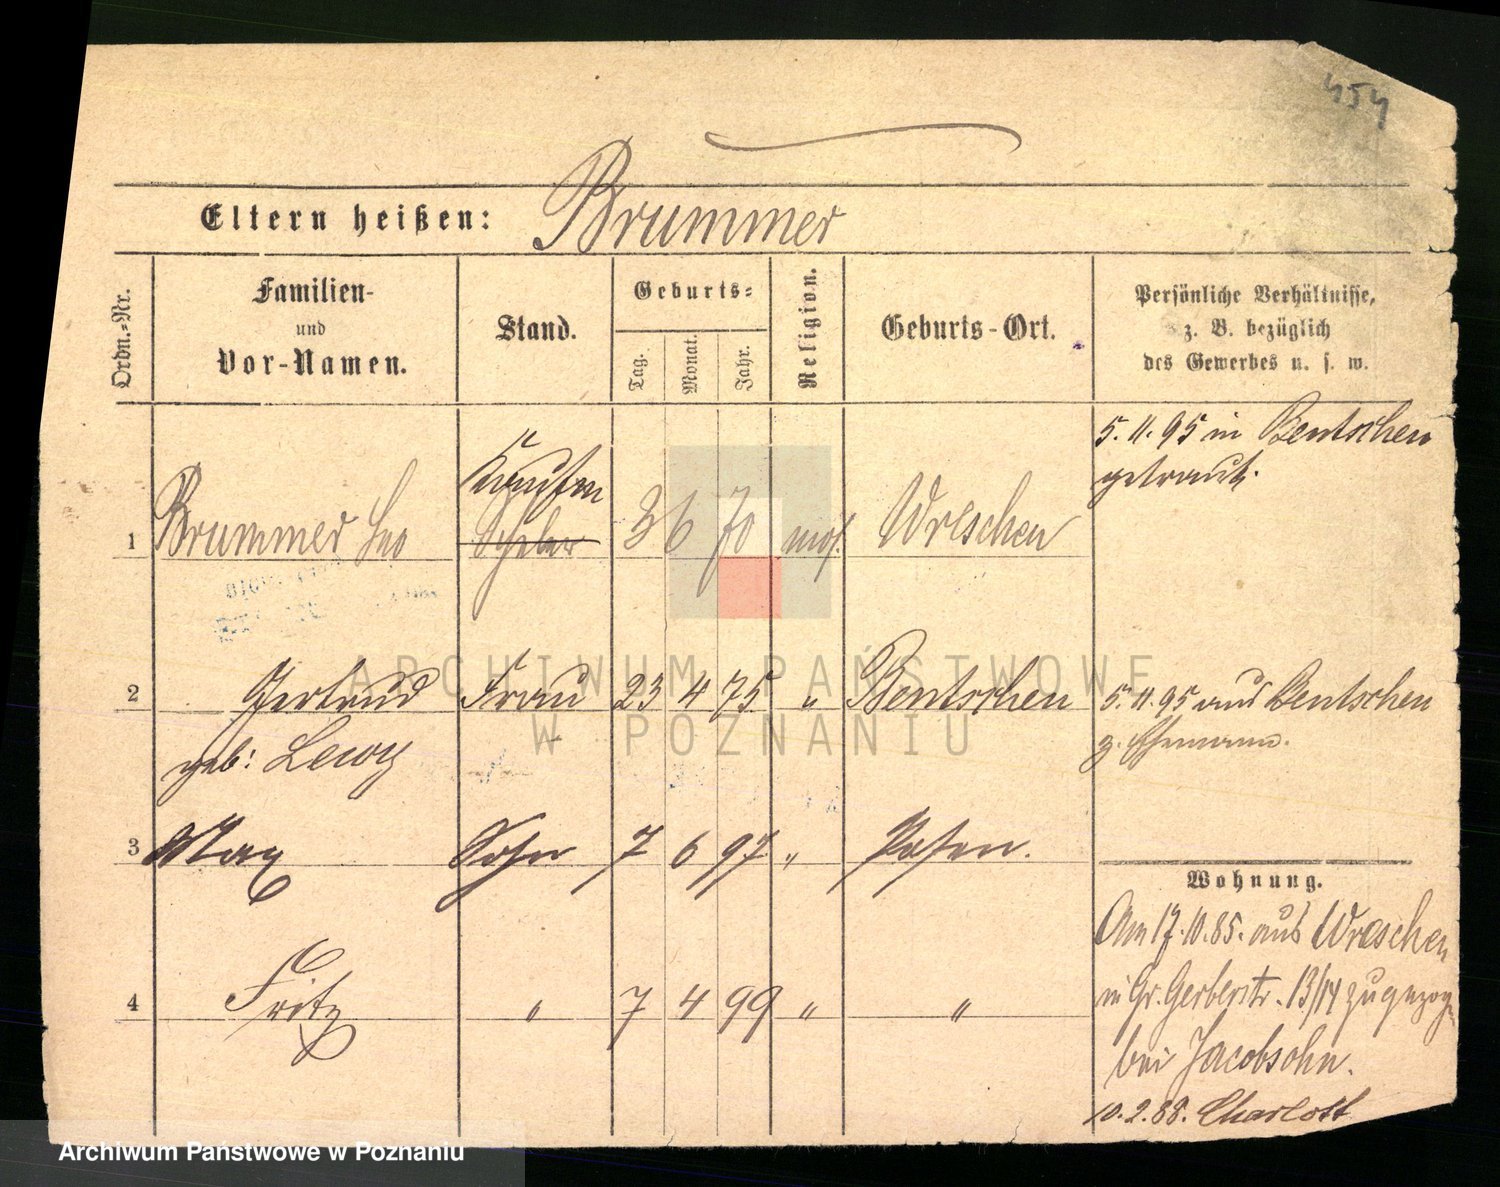 454
Eltern heißen: Brummer
Ordn.-Nr.
Familien-
und
Vor-Namen.
Stand.
Geburts-
Tag.
Monat.
Jahr.
Religion.
Geburts-Ort.
Persönliche Verhältnisse,
z. B. bezüglich
des Gewerbes u. s. w.
5. 11. 95 in Bentschen
getraut.
Kaufm
1 Brummer Leo Schüler 3 6 70 mos. Wreschen
2 Gertrud Frau 23 4 75 " Bentschen 5. 11. 95 aus Bentschen
geb: Lewy z. Ehemann.
3 Max Sohn 7 6 97 " Posen.
Wohnung.
Am 17. 10. 85. aus Wreschen
4 Fritz " 7 4 99 " "
in Gr. Gerberstr. 13/14 zugezogen
bei Jacobsohn.
10. 2. 88. Charlott
ARCHIWUM PAŃSTWOWE
W POZNANIU
Archiwum Państwowe w Poznaniu